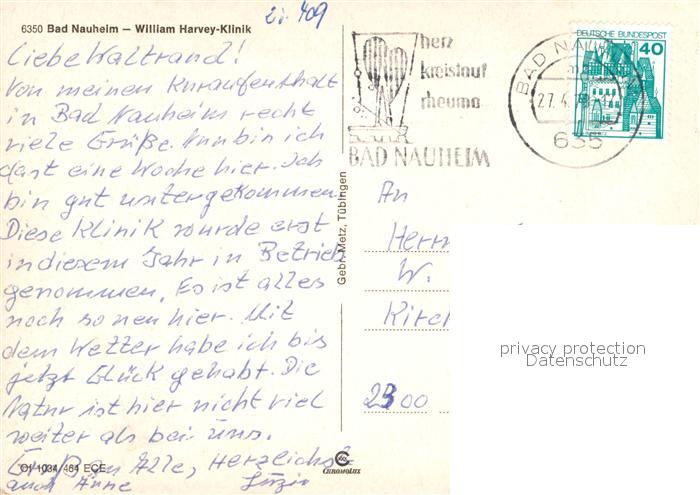 21.409
6350 Bad Nauheim – William Harvey-Klinik
Liebe Waltraud!
Von meinen Kuraufenthalt
in Bad Nauheim recht
viele Grüße. Nun bin ich
fast eine Woche hier. Ich
bin gut untergekommen.
Diese Klinik wurde erst
in diesem Jahr in Betrieb
genommen. Es ist alles
noch so neu hier. Mit
dem Wetter habe ich bis
jetzt Glück gehabt. Die
Natur ist hier nicht viel
weiter als bei uns.
Grüße an Alle, Herzlichst
auch Anne
OI 1034 464 ECE
Gebr. Metz, Tübingen
CHROMOLUX
herz
kreislauf
rheuma
BAD NAUHEIM
DEUTSCHE BUNDESPOST
40
BAD NAUHEIM
27.4.
635
An
Herrn
W.
Kirch
2300
privacy protection
Datenschutz